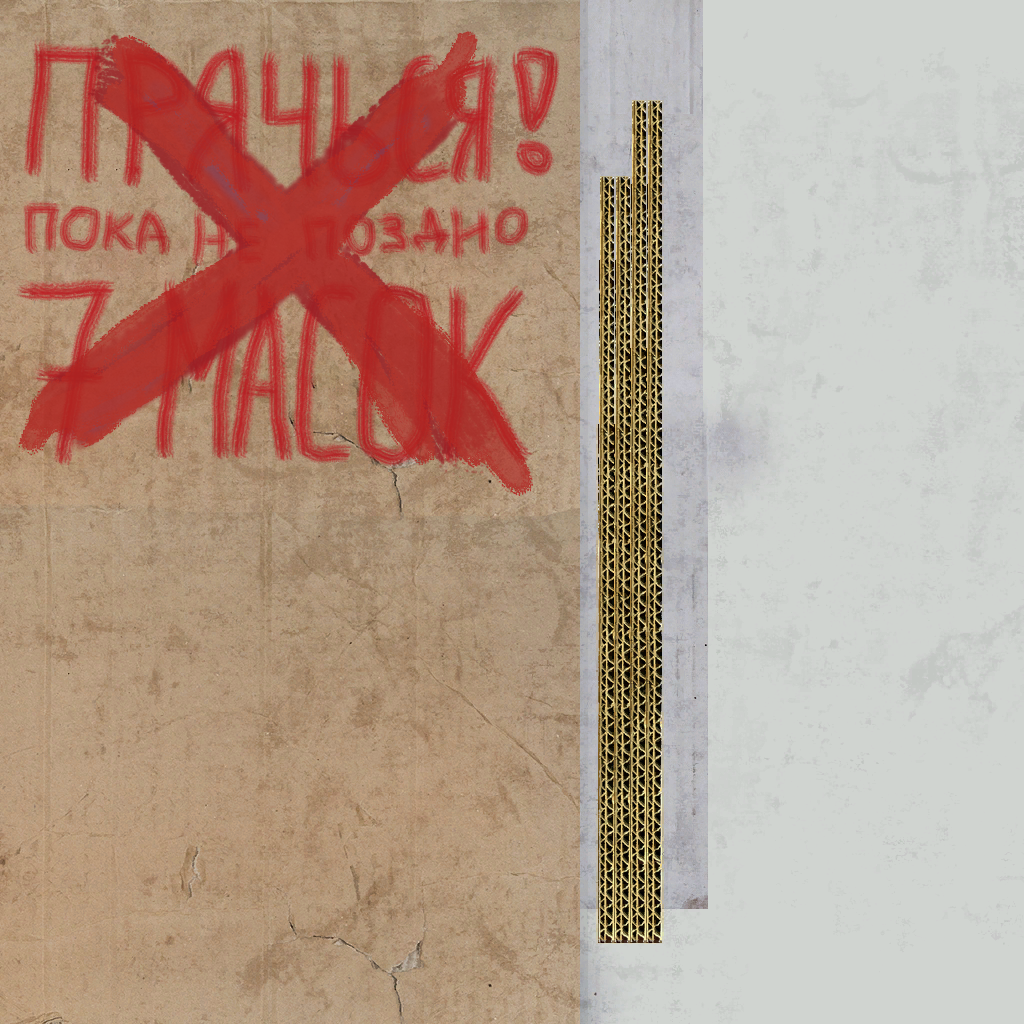 ПРАЧЬСЯ!
ПОКА НЕ ПОЗДНО
7 МАСОК